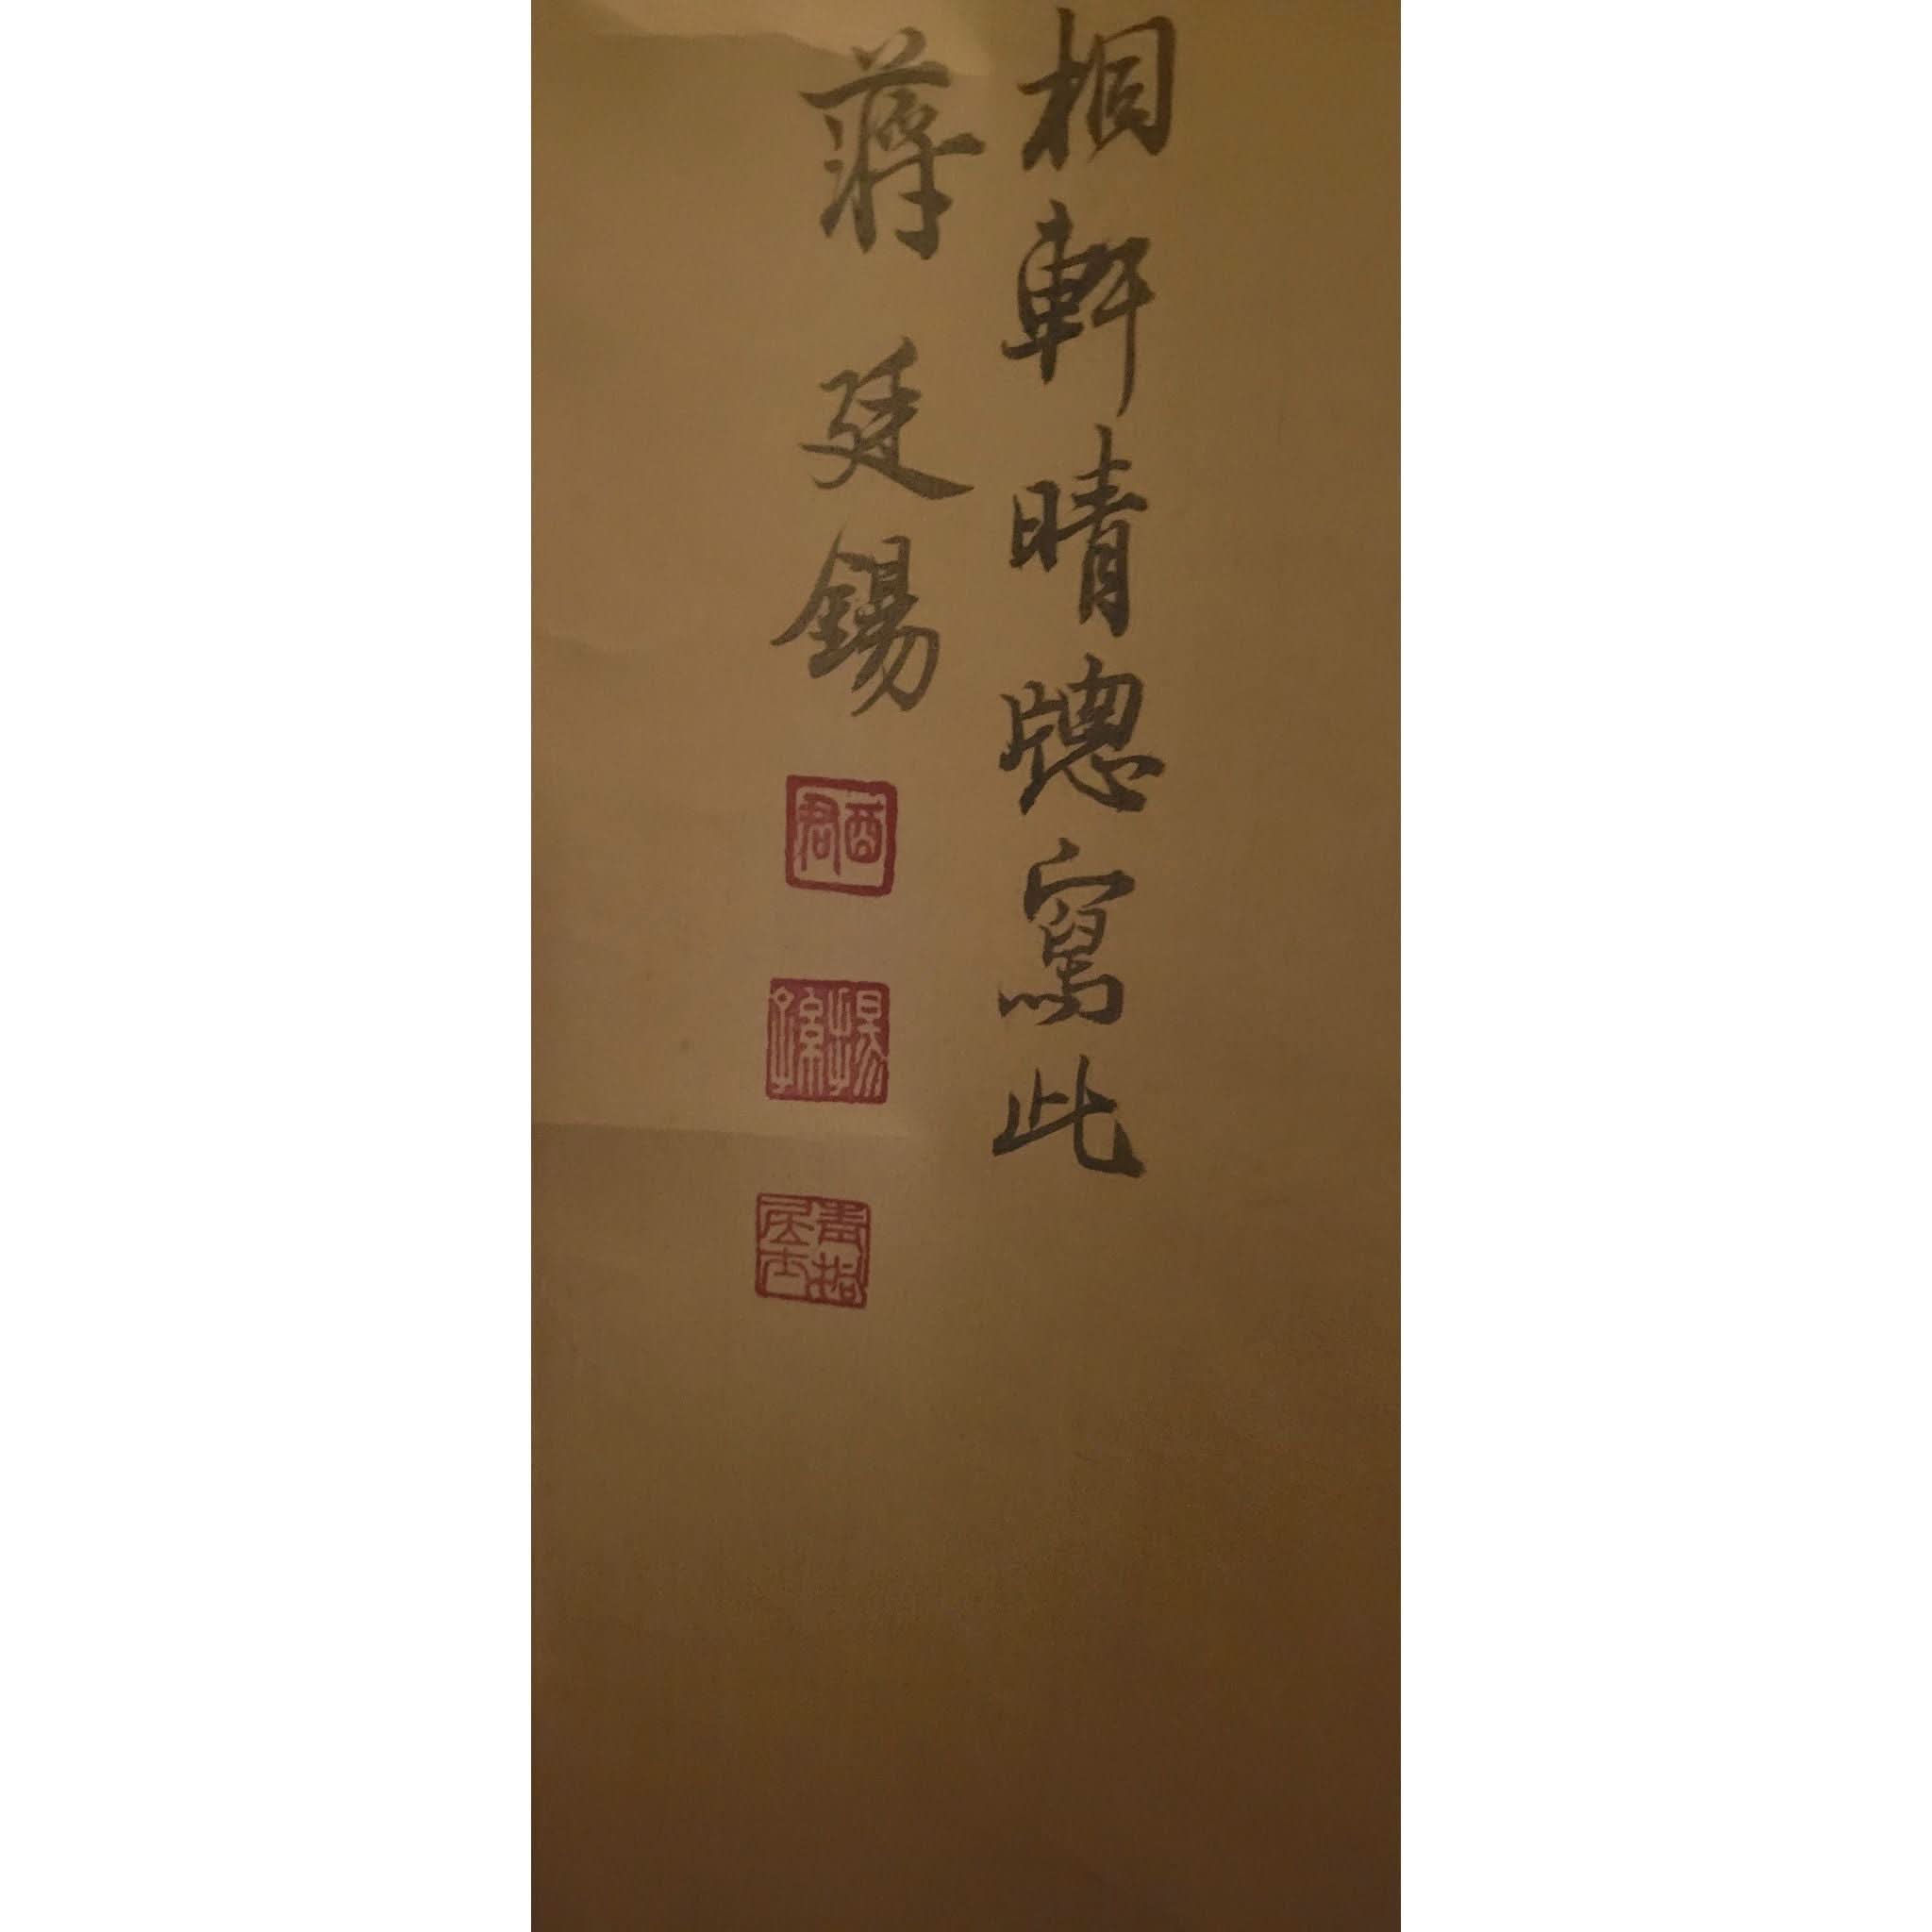 桐軒晴牕寫此
蔣廷錫
酉君
揚孫
青桐居士